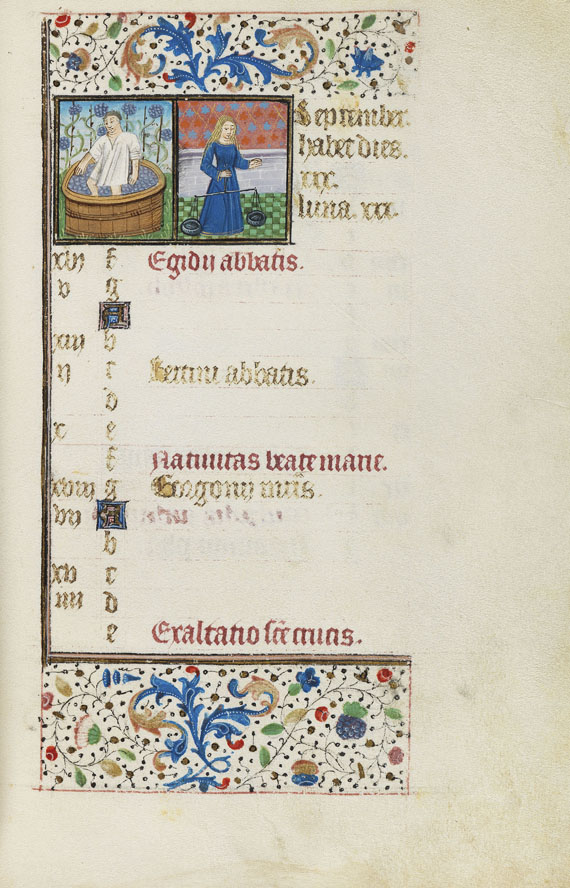 September
habet dies.
xxx.
luna. xxx.
xvj f Egidij abbatis.
v g
A
xiij b
ij c Bertini abbatis.
d
x e
f Natiuitas beate marie.
xviij g Gorgonij mr̄is.
vij A
b
xv c
iiij d
e Exaltatio sc̄e crucis.